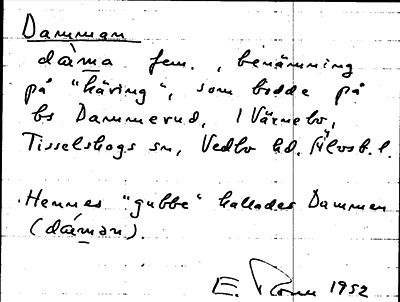 Damman
dàma fem., benämning
på "käring", som bodde på
bs Dammerud, i Värnebo,
Tisselskogs sn, Vedbo hd. Älvsb. l.
Hennes "gubbe" kallades Damman
(dáman).
E. 1952